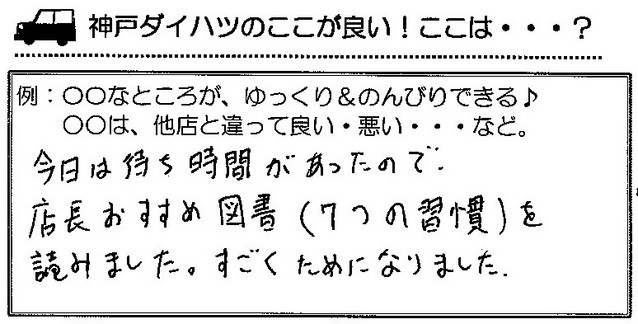 神戸ダイハツのここが良い！ここは・・・？
例：〇〇なところが、ゆっくり＆のんびりできる♪
〇〇は、他店と違って良い・悪い・・・など。
今日は待ち時間があったので.
店長おすすめ図書(7つの習慣)を
読みました。すごくためになりました.